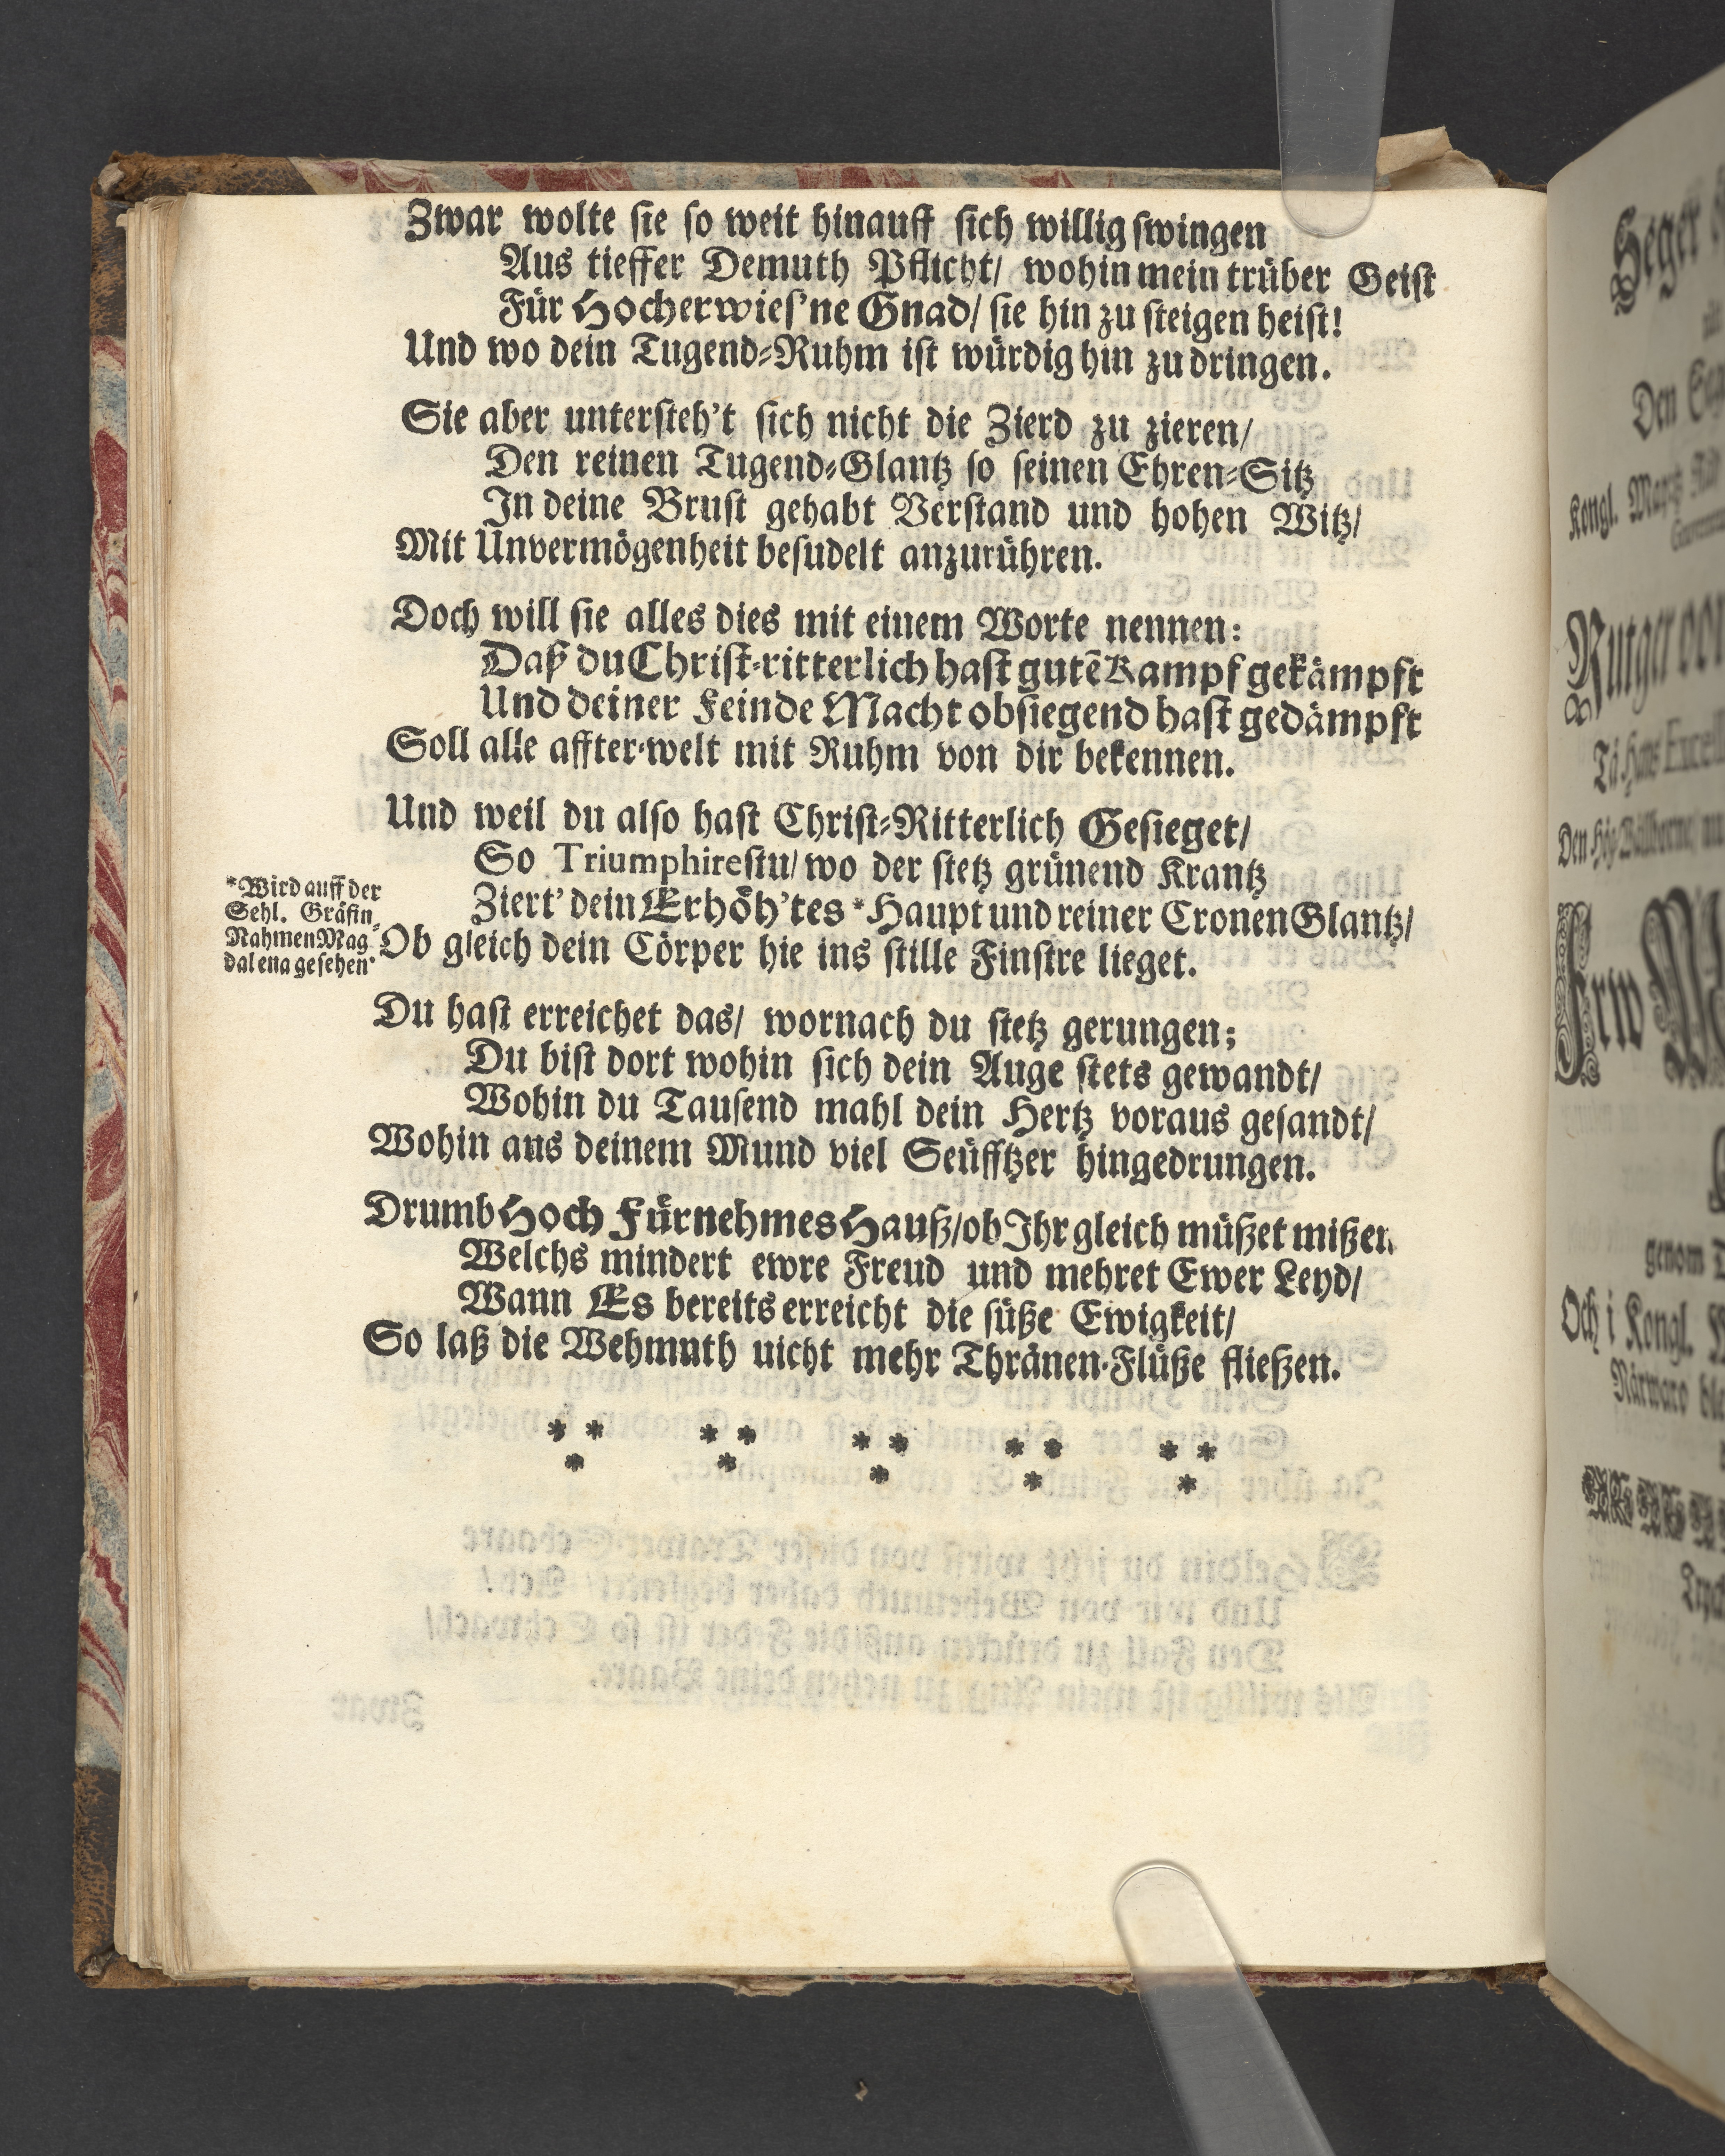 Zwar wolte sie so weit hinauff sich willig swingen
Aus tieffer Demuth Pflicht/ wohin mein trüber Geist
Für Hocherwies'ne Gnad/ sie hin zu steigen heist!
Und wo dein Tugend-Ruhm ist würdig hin zu dringen.
Sie aber untersteh't sich nicht die Zierd zu zieren/
Den reinen Tugend-Glantz so seinen Ehren-Sitz
In deine Brust gehabt Verstand und hohen Witz/
Mit Unvermögenheit besudelt anzurühren.
Doch will sie alles dies mit einem Worte nennen:
Daß du Christ-ritterlich hast gutẽ Kampf gekämpft
Und deiner Feinde Macht obsiegend hast gedämpft
Soll alle affter-welt mit Ruhm von dir bekennen.
Und weil du also hast Christ-Ritterlich Gesieget/
So Triumphirestu/ wo der stetz grünend Krantz
Ziert' dein Erhöh'tes * Haupt und reiner Cronen Glantz/
Ob gleich dein Cörper hie ins stille Finstre lieget.
*Wird auff der
Sehl. Gräfin
Nahmen Mag-
dalena gesehen
Du hast erreichet das/ wornach du stetz gerungen;
Du bist dort wohin sich dein Auge stets gewandt/
Wohin du Tausend mahl dein Hertz voraus gesandt/
Wohin aus deinem Mund viel Seüfftzer hingedrungen.
Drumb Hoch Fürnehmes Hauß/ ob Ihr gleich müßet mißen
Welchs mindert ewre Freud und mehret Ewer Leyd/
Wann Es bereits erreicht die süße Ewigkeit/
So laß die Wehmuth nicht mehr Thränen-Flüße fließen.
* * * * * * * * * *
* * * * *
Den
Kongl.
Rutger von
Tå Hans Excell
Frw
genom
Och i Kongl.